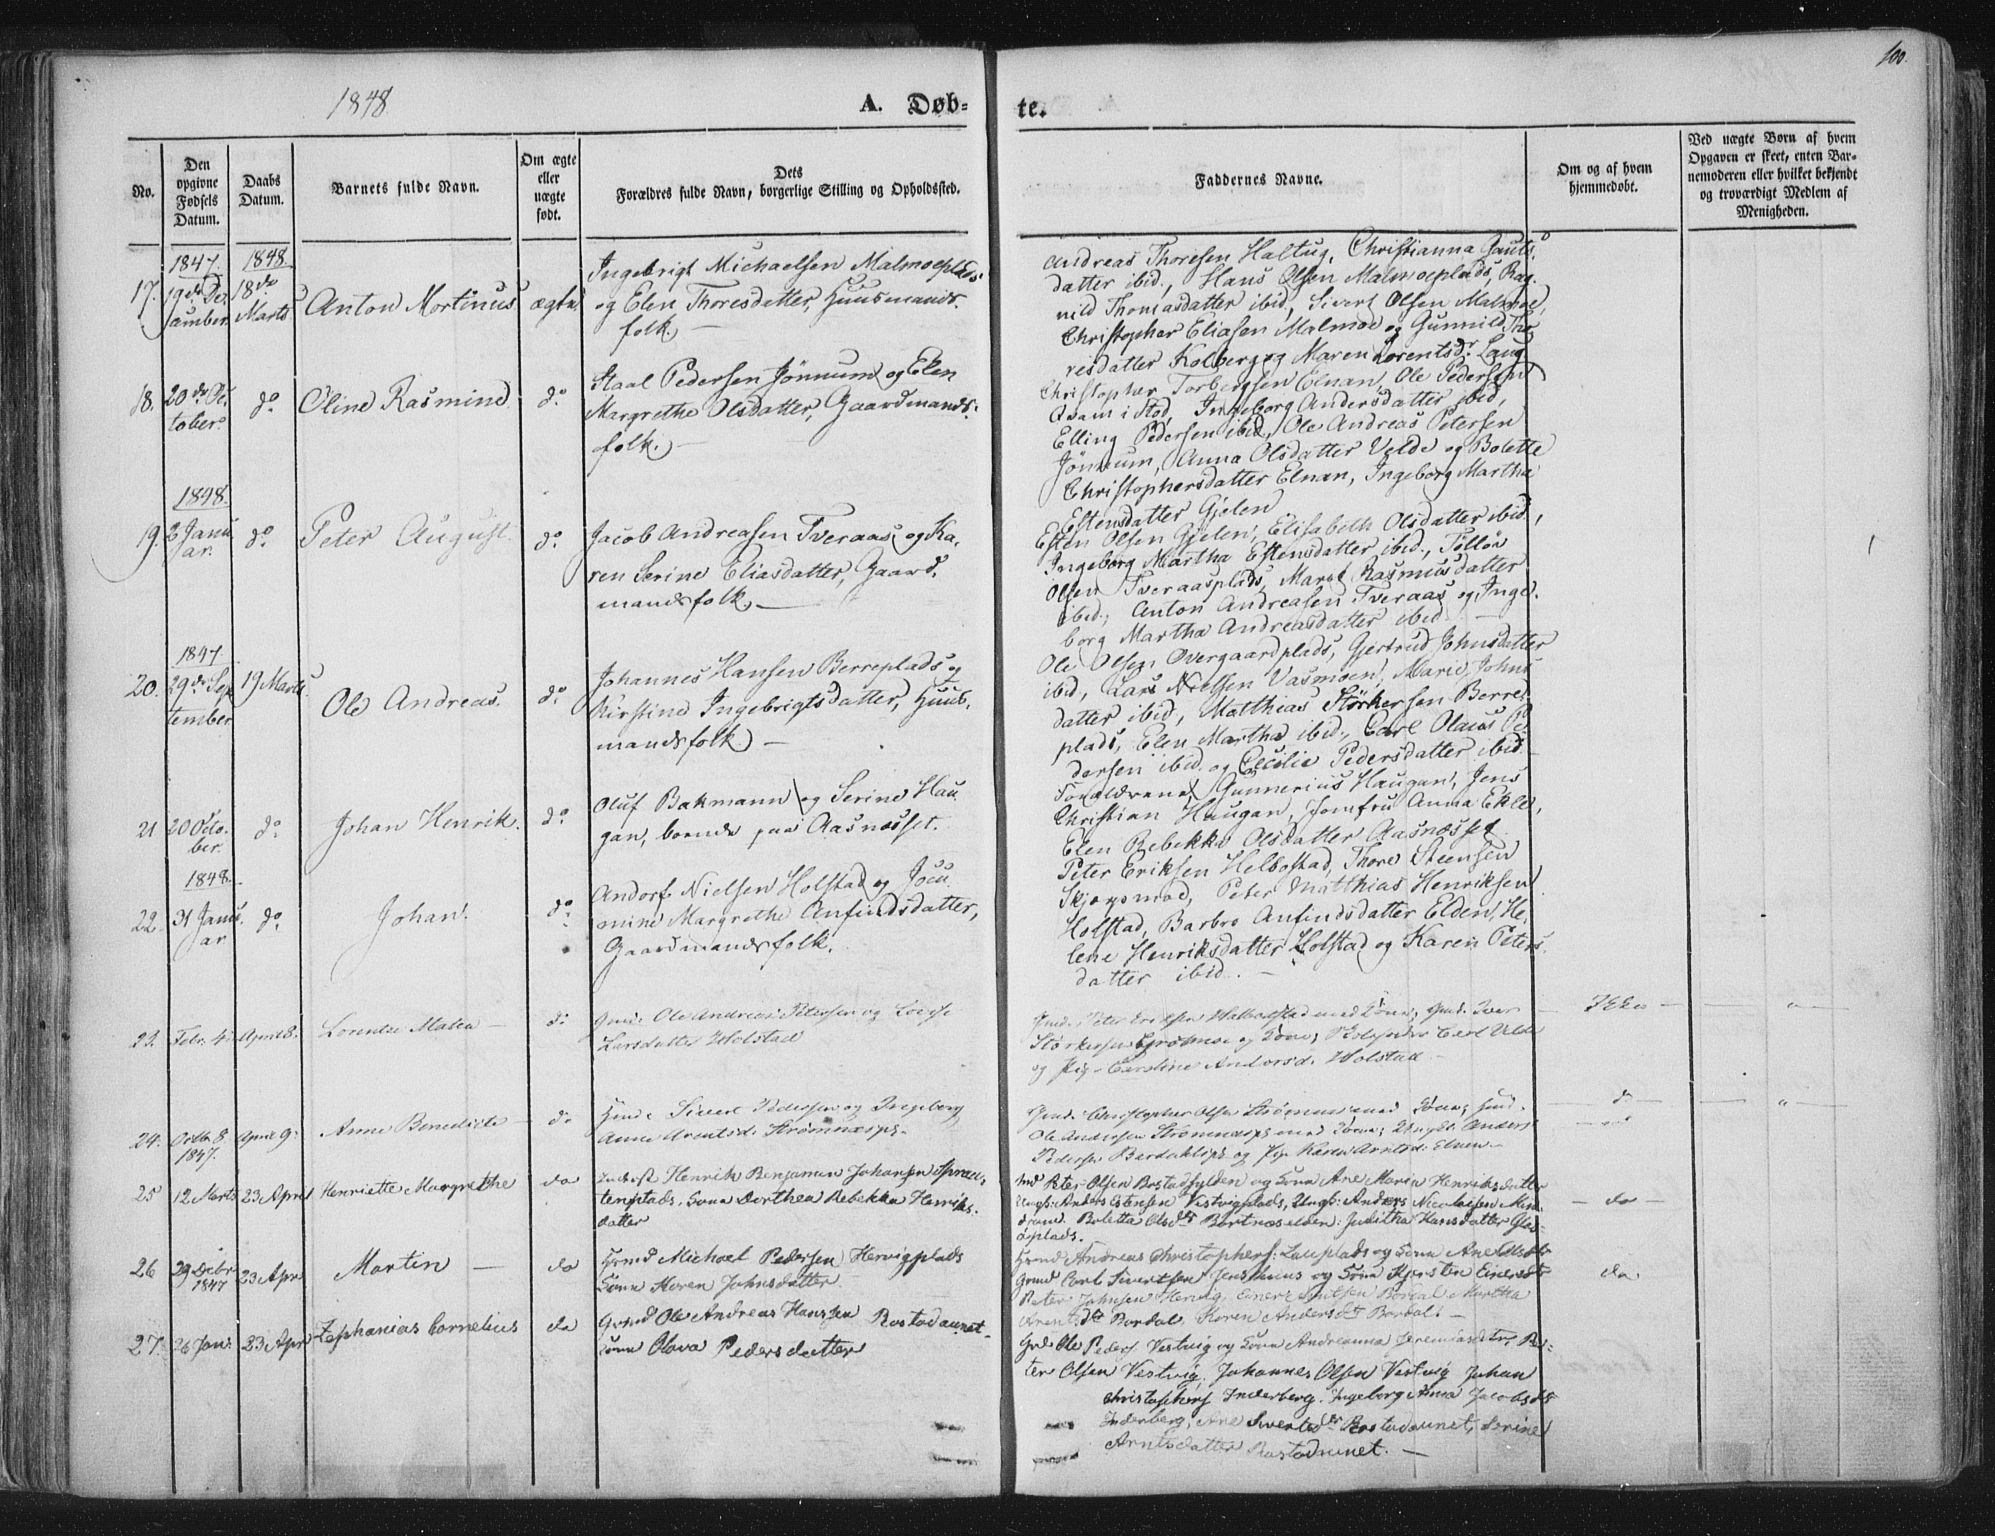 100.
1848
A. Døb-
te.
No.
Den opgivne Fødsels Datum.
Daabs Datum.
Barnets fulde Navn.
Om ægte eller uægte født.
Dets
Forældres fulde Navn, borgerlige Stilling og Opholdssted.
Faddernes Navne.
Om og af hvem hjemmedøbt.
Ved uægte Børn af hvem
Opgaven er skeet, enten Bar-
nemoderen eller hvilket bekjendt
og troværdigt Medlem af
Menigheden.
1847. 1848.
17. 19de De- cember. 18de Marts Anton Mortinus ægte.
Ingebrigt Michaelsen Malmoeplads
og Elen Thoresdatter, Huusmands-
folk —
Andreas Thoresen Haltug, Christianna Gauts-
datter ibid., Hans Olsen Malmoeplads, Rag-
nild Thomasdatter ibid, Sivert Olsen Malmoe,
Christopher Eliasen Malmoe og Gunnild Tho-
resdatter Kolberg og Maren Lorentsdr. Laug
18. 20de Oc- tober. do. Oline Rasmine do.
Staal Pedersen Jønnum og Elen
Margrethe Olsdatter, Gaardmands-
folk. —
Christopher Torbergsen Elnan, Ole Pedersen
Qvam i Stod, Ingeborg Andersdatter ibid,
Elling Pedersen ibid, Ole Andreas Petersen
Jønnum, Anna Olsdatter Velde og Bolette
Christophersdatter Elnan, Ingeborg Martha
Estensdatter Gjelen
1848.
19. 2 Janu- ar. do. Peter August. do.
Jacob Andreasen Tveraas og Ka-
ren Serine Eliasdatter, Gaard-
mandsfolk. —
Esten Olsen Gjelen, Elisabeth Olsdatter ibid.,
Ingeborg Martha Estensdatter ibid., Tølløv
Olsen Tveraasplads, Maret Rasmusdatter
ibid., Anton Andreasen Tveraas og Inge-
borg Martha Andreasdatter ibid
1847.
20. 29de Sep- tember 19 Marts. Ole Andreas. do.
Johannes Hansen Berreplads og
Kirstine Ingebrigtsdatter, Huus-
mandsfolk —
Ole Olsen Overgaardplads, Gjertrud Johnsdatter
ibid, Lars Nielsen Vasmoen, Marie Johns-
datter ibid, Matthias Størkersen Berre-
plads, Elen Martha ibid., Carl Olaus Pe-
dersen ibid. og Cecilie Pedersdatter ibid.
21 20 Octo- ber. do. Johan Henrik. do.
Oluf Bakmann og Serine Hau-
gan, boende paa Aasnæsset.
Forældrene, Gunnerius Haugan, Jens
Christian Haugan, Jomfru Anna Ekle,
Elen Rebekka Olsdatter Aasnæsset
1848.
22. 31 Janu- ar do. Johan. do.
Andorf Nielsen Holstad og Jocu-
mine Margrethe Anfindsdatter,
Gaardmandsfolk.
Peter Eriksen Helbostad, Thore Steensen
Skjægsmad, Peter Matthias Henriksen
Holstad, Barbro Anfindsdatter Elden, He-
lene Henriksdatter Holstad og Karen Peters-
datter ibid. —
23. Febr. 4 April 8. Lorentze Malea — do
Gmd. Ole Andreas Petersen og Lovise
Larsdatter Holstad
Gmd. Peter Eriksen Halbostad med Kone, Gmd. Iver
Størkersen og Kone, Carl Velde
og Pig. Caroline Andorsd. Holstad —
Ikke — — " —
24. Octbr 8. 1847. April 9. Anne Benedicte — do
Hmd. Sivert Pedersen og Ingeborg
Anna Arentsd. Strømnæspl.
Gmd. Christopher Olsen Strømnæs med Kone, Hmd.
Ole Andersen Strømnæspl. med Kone, Ungk. Anders
Pedersen og Pige Karen Arntsd. Elnen. —
do — — " —
25 12 Marts 23 April Henriette Margrethe do
Inderst Henrik Benjamin Johansen
tenplads. Kone Dorthea Rebekka Henriks-
datter
Hmd Peter Olsen Bostadhylden og Kone Ane Marie Henriksdatter
Ungk: Anders Estensen Vestvigplads, Ungk: Anders Nicolaisen
Boletta Olsdtr Bortnæselden. Juditha Hansdatter
plads.
— do —
26 29 Decbr 1847 23 Apr Morten — do
Hsmd Michael Pedersen Hervigplads
Kone Maren Johnsdatter
Hsmd Andreas Christophers: Lauplads og Kone Ane Olsdtr
Grmd Carl Sivertsen Jenshuus og Kone Kjersten Einersdtr
Peter Johnsen Hervig, Einert Bordal Martha
Arentsdtr Bordal Karen Andersdtr Bordal. —
do
27. 26 Jan: 23 Apr Zephanias Cornelius do
Grmd Ole Andreas Hanssen Rostadaunet
Kone Olava Pedersdatter
Gmd Ole Peders Vestvig og Kone Andreanna Jeremiasdtr, Pe-
ter Olsen Vestvig, Johannes Olsen Vestvig Johan
Christophers Inderberg. Ingeborg Anna Jacobsdtr
Inderberg, Ane Sivertsdtr Rostadaunet, Serine
Arntsdatter Rostadaunet. —